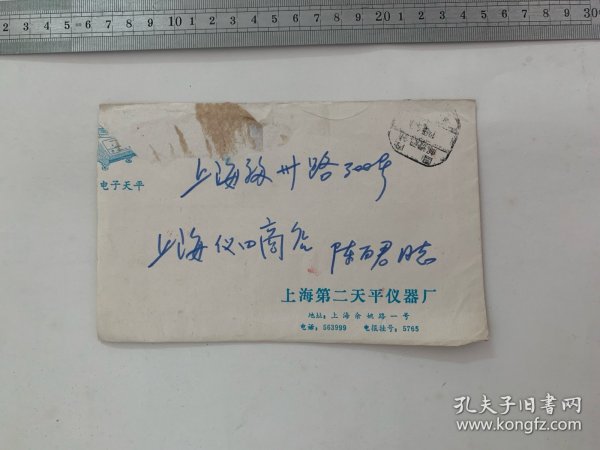 2 3 4 5 6 7 8 9 10 1 2 3 4 5 6 7 8 9 20 1 2 3 4 5 6 7 8 9 30
电子天平
上海福州路300号
上海仪四商公 陈百君同志
上海第二天平仪器厂
地址：上海余姚路一号
电话：563999 电报挂号：5765
孔夫子旧书网
www.kongfz.com